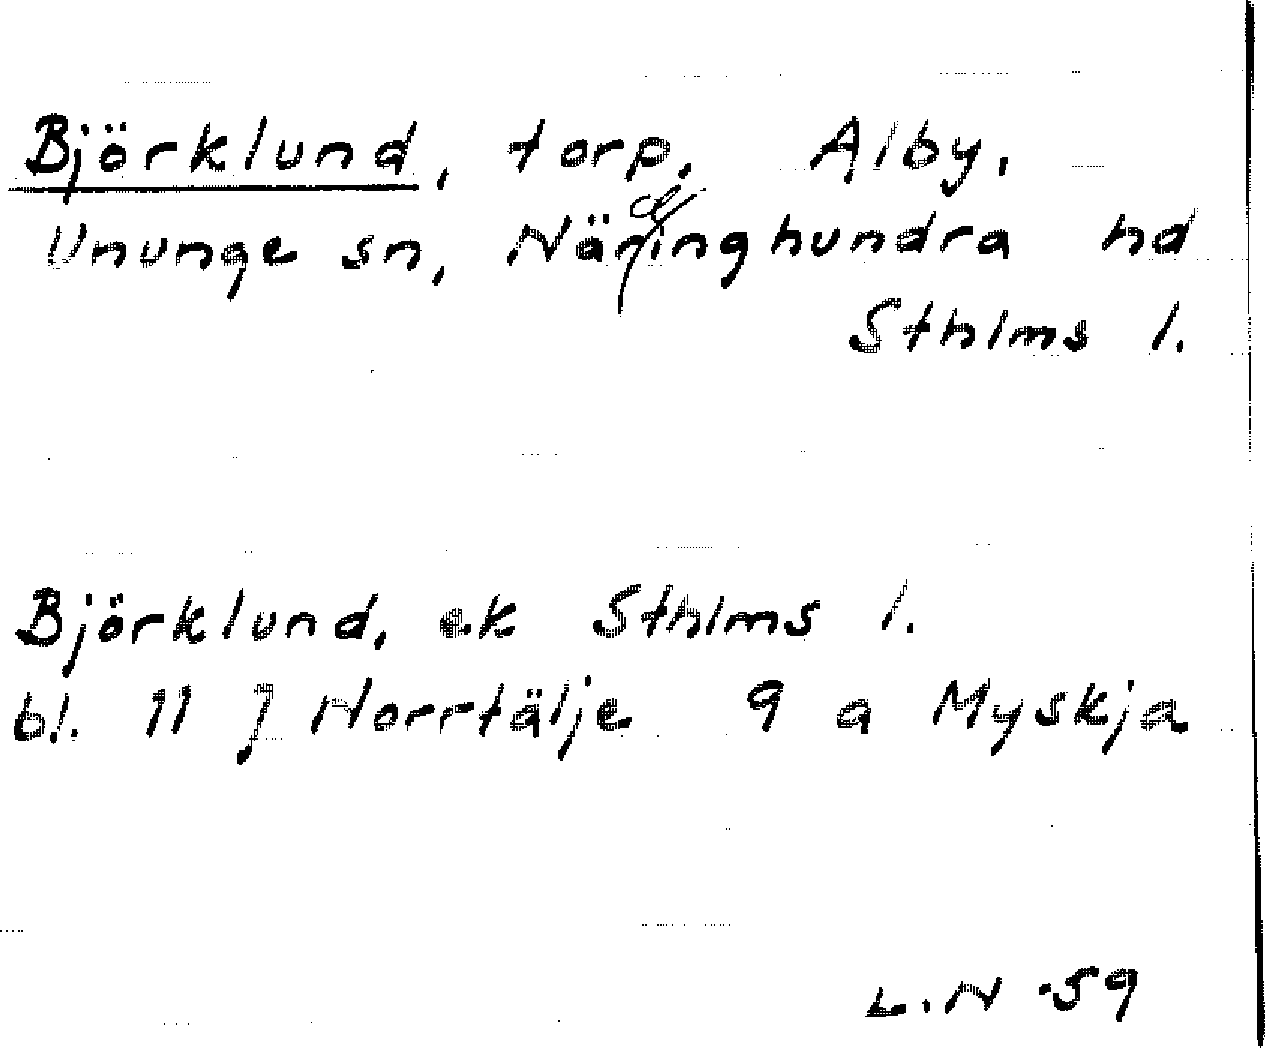 Björklund, torp, Alby,
Ununge sn, Näringhundra hd
Sthlms l.
Björklund, ek Sthlms l.
bl. 11 J Norrtälje 9 a Myskja
L.N -59